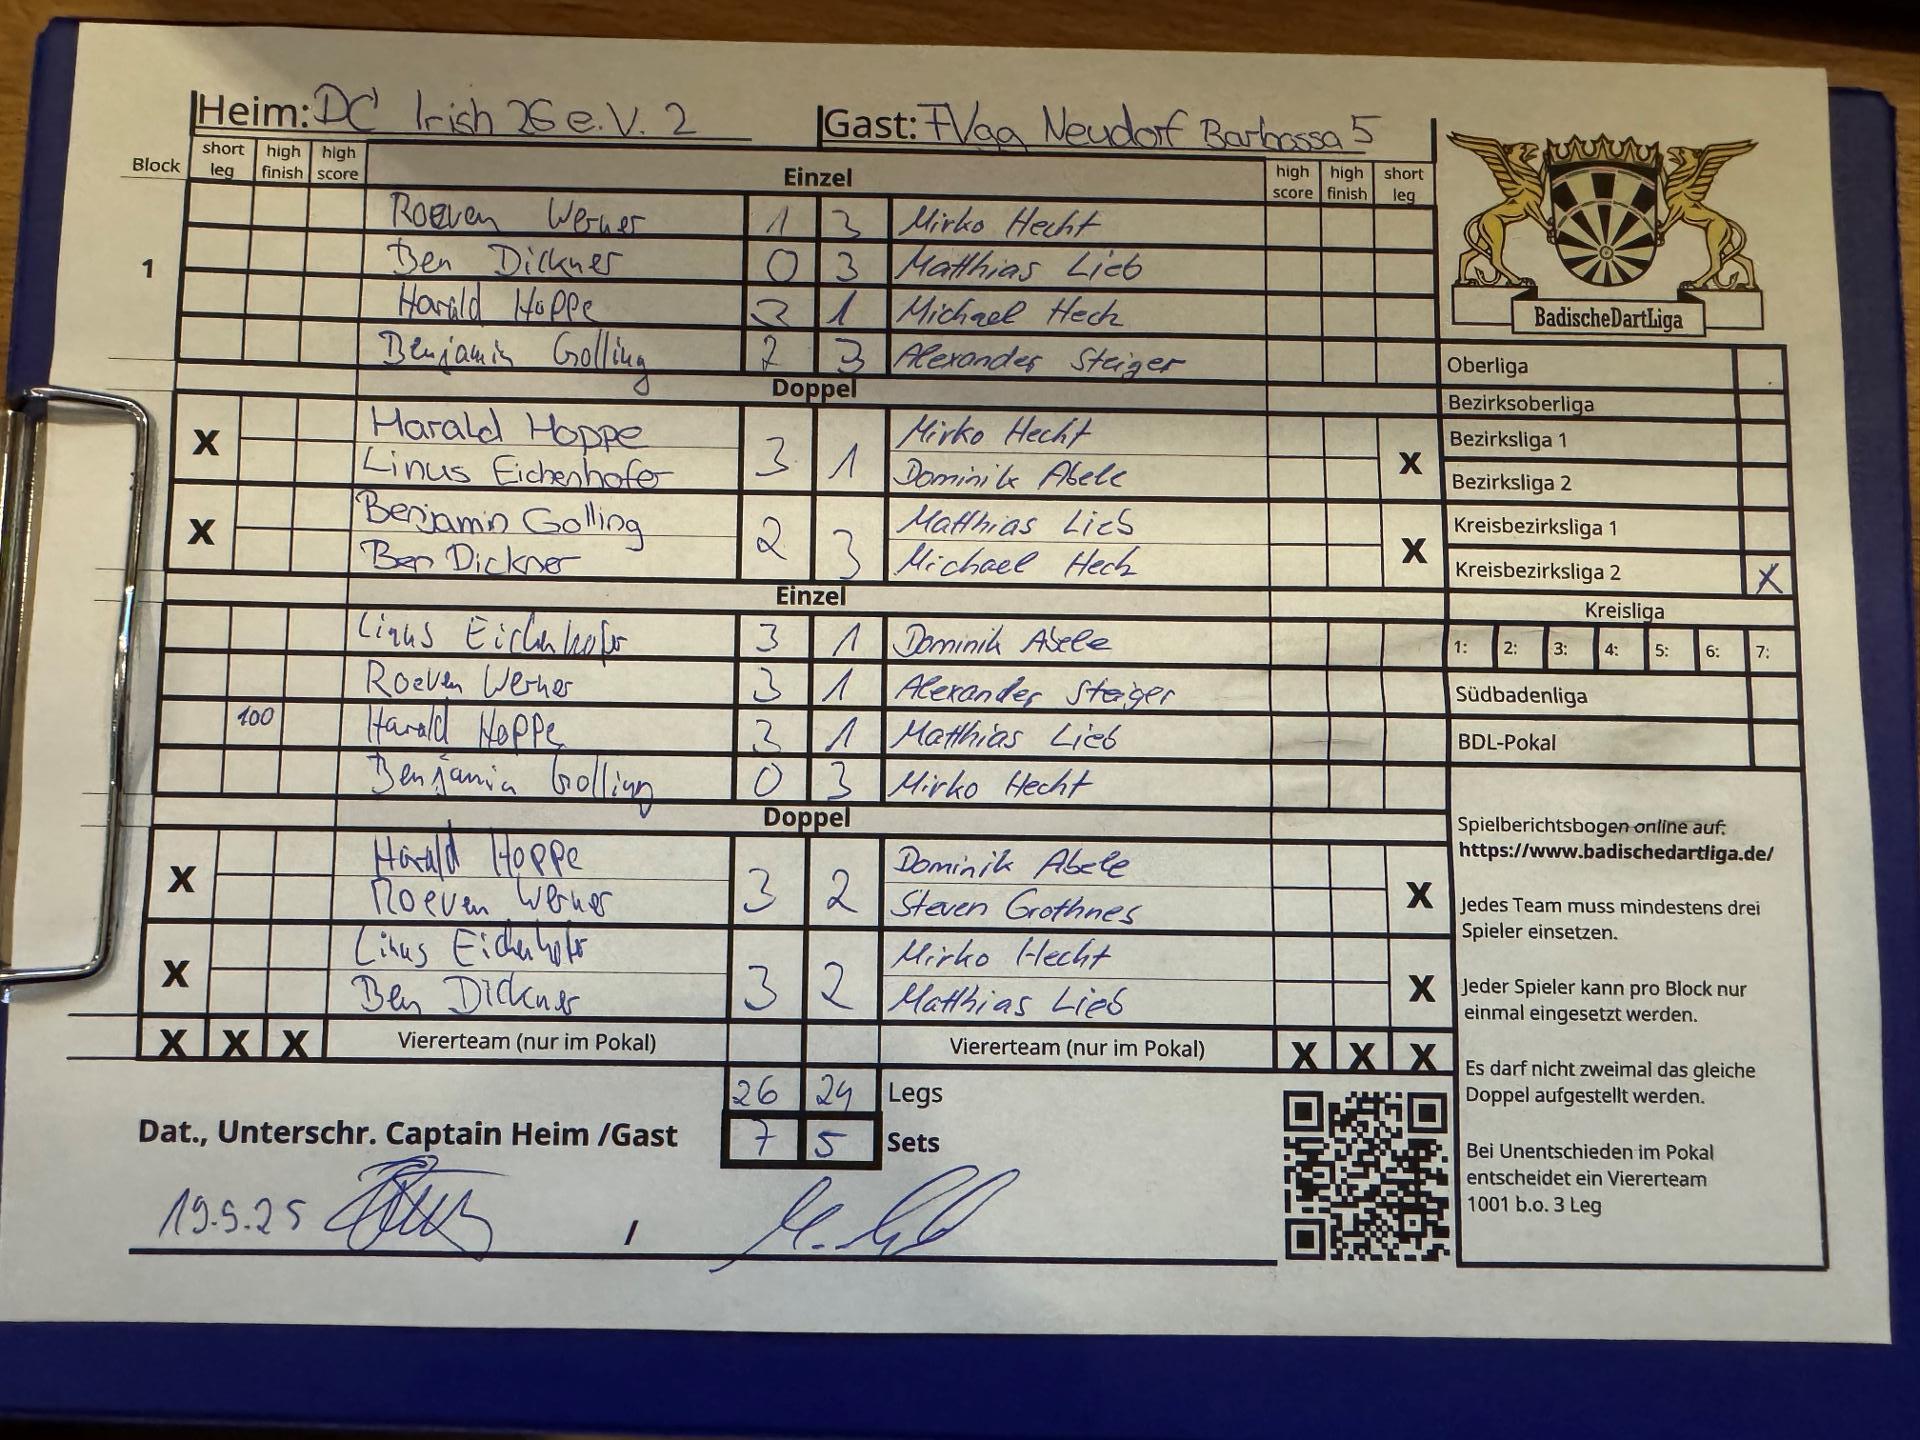 Heim: DC Irish 26 e.V. 2 Gast: FVgg Neudorf Barbossa 5
Block short leg high finish high score Einzel high score high finish short leg
Roeven Werner 1 3 Mirko Hecht
1 Ben Dickner 0 3 Matthias Lieb
Harald Hoppe 3 1 Michael Heck
Benjamin Golling 2 3 Alexander Steiger
Doppel
X Harald Hoppe 3 1 Mirko Hecht X
Linus Eichenhofer Dominik Abele
X Benjamin Golling 2 3 Matthias Lieb X
Ben Dickner Michael Heck
Einzel
Linus Eichenhofer 3 1 Dominik Abele
Roeven Werner 3 1 Alexander Steiger
100 Harald Hoppe 3 1 Matthias Lieb
Benjamin Golling 0 3 Mirko Hecht
Doppel
X Harald Hoppe 3 2 Dominik Abele X
Roeven Werner Steven Grothnes
X Linus Eichenhofer 3 2 Mirko Hecht X
Ben Dickner Matthias Lieb
X X X Viererteam (nur im Pokal) Viererteam (nur im Pokal) X X X
26 24 Legs
Dat., Unterschr. Captain Heim /Gast 7 5 Sets
19.9.25 /
BadischeDartLiga
Oberliga
Bezirksoberliga
Bezirksliga 1
Bezirksliga 2
Kreisbezirksliga 1
Kreisbezirksliga 2 X
Kreisliga
1: 2: 3: 4: 5: 6: 7:
Südbadenliga
BDL-Pokal
Spielberichtsbogen online auf:
https://www.badischedartliga.de/
Jedes Team muss mindestens drei
Spieler einsetzen.
Jeder Spieler kann pro Block nur
einmal eingesetzt werden.
Es darf nicht zweimal das gleiche
Doppel aufgestellt werden.
Bei Unentschieden im Pokal
entscheidet ein Viererteam
1001 b.o. 3 Leg